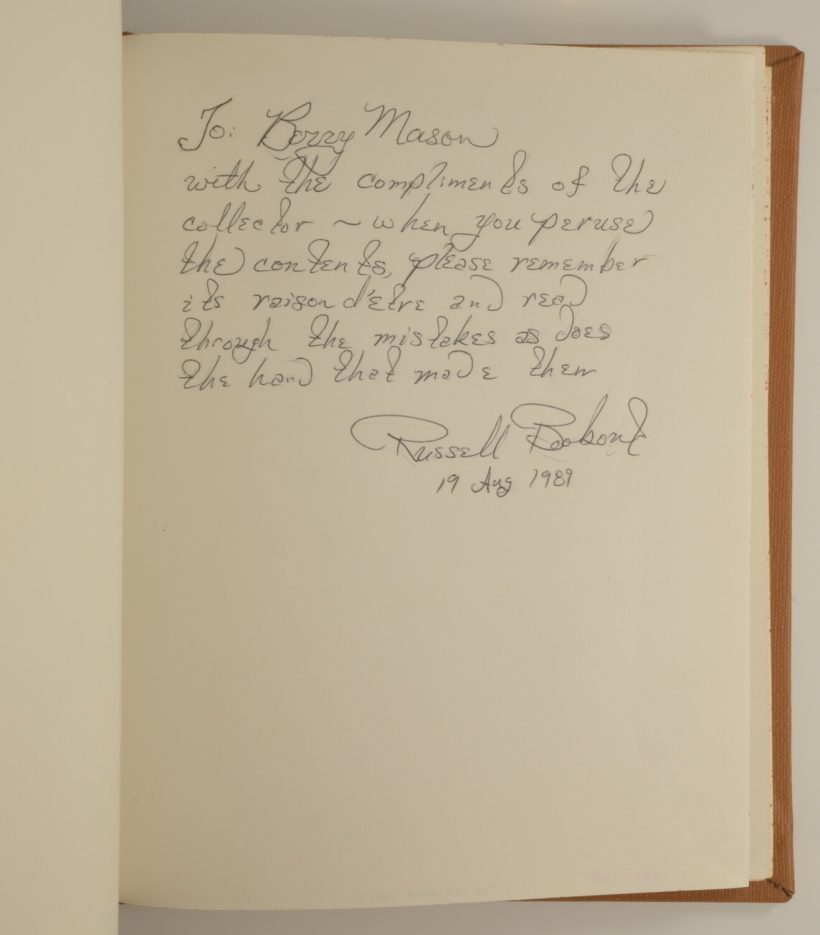 To: Berry Mason
with the compliments of the
collector ~ when you peruse
the contents, please remember
its raison d'etre and read
through the mistakes as does
the hand that made them
Russell
19 Aug 1989